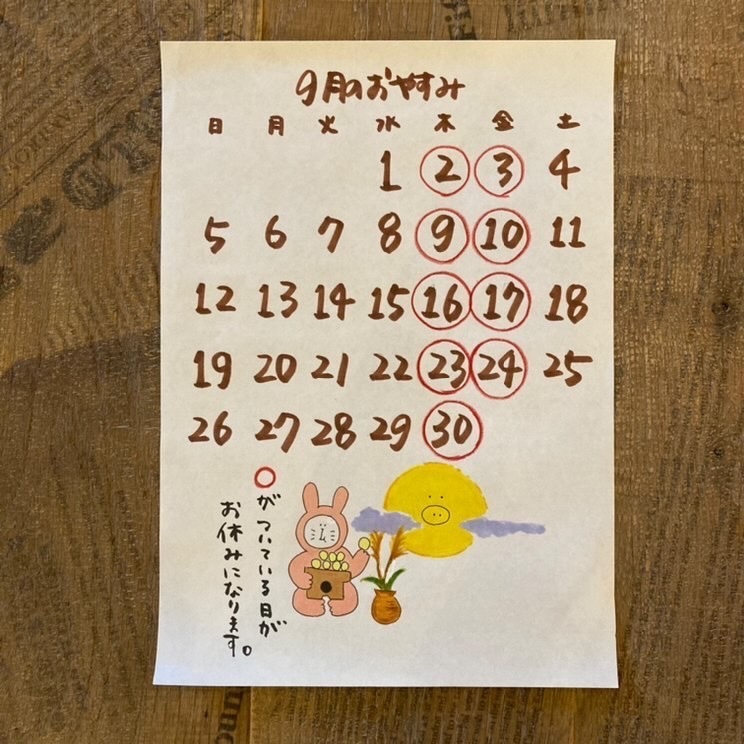 9月のおやすみ
日 月 火 水 木 金 土
1 2 3 4
5 6 7 8 9 10 11
12 13 14 15 16 17 18
19 20 21 22 23 24 25
26 27 28 29 30
○がついている日が
お休みになります。